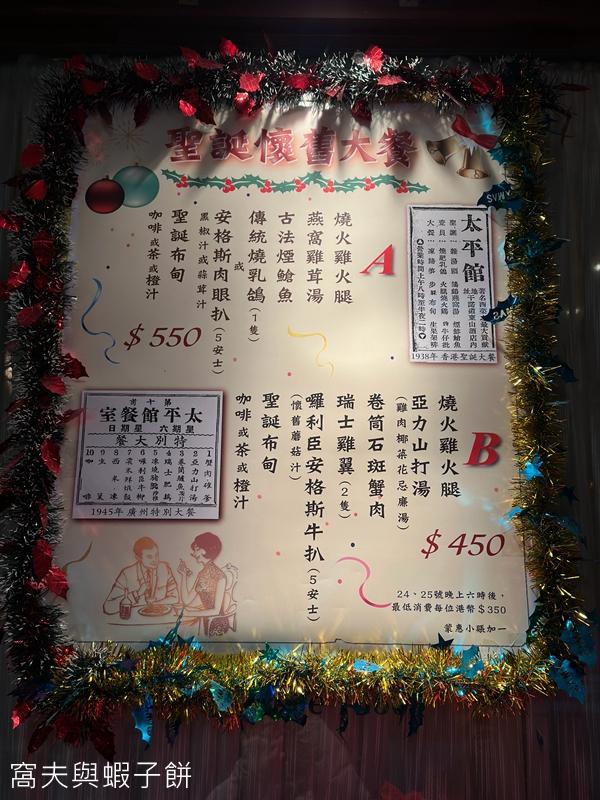 聖誕懷舊大餐
A
燒火雞火腿
燕窩雞茸湯
古法煙鯧魚
傳統燒乳鴿(1隻)
或
安格斯肉眼扒(5安士)
黑椒汁或蒜茸汁
聖誕布甸
咖啡或茶或橙汁
$550
太平館
1938年香港聖誕大餐
B
燒火雞火腿
亞力山打湯
(雞肉椰菜花忌廉湯)
卷筒石斑蟹肉
瑞士雞翼(2隻)
羅利臣安格斯牛扒(5安士)
(懷舊蘑菇汁)
聖誕布甸
咖啡或茶或橙汁
$450
考十第
室餐館平太
日期星 六期星
餐大別特
1945年廣州特別大餐
24、25號晚上六時後,
最低消費每位港幣$350
蒙惠小賬加一
窩夫與蝦子餅